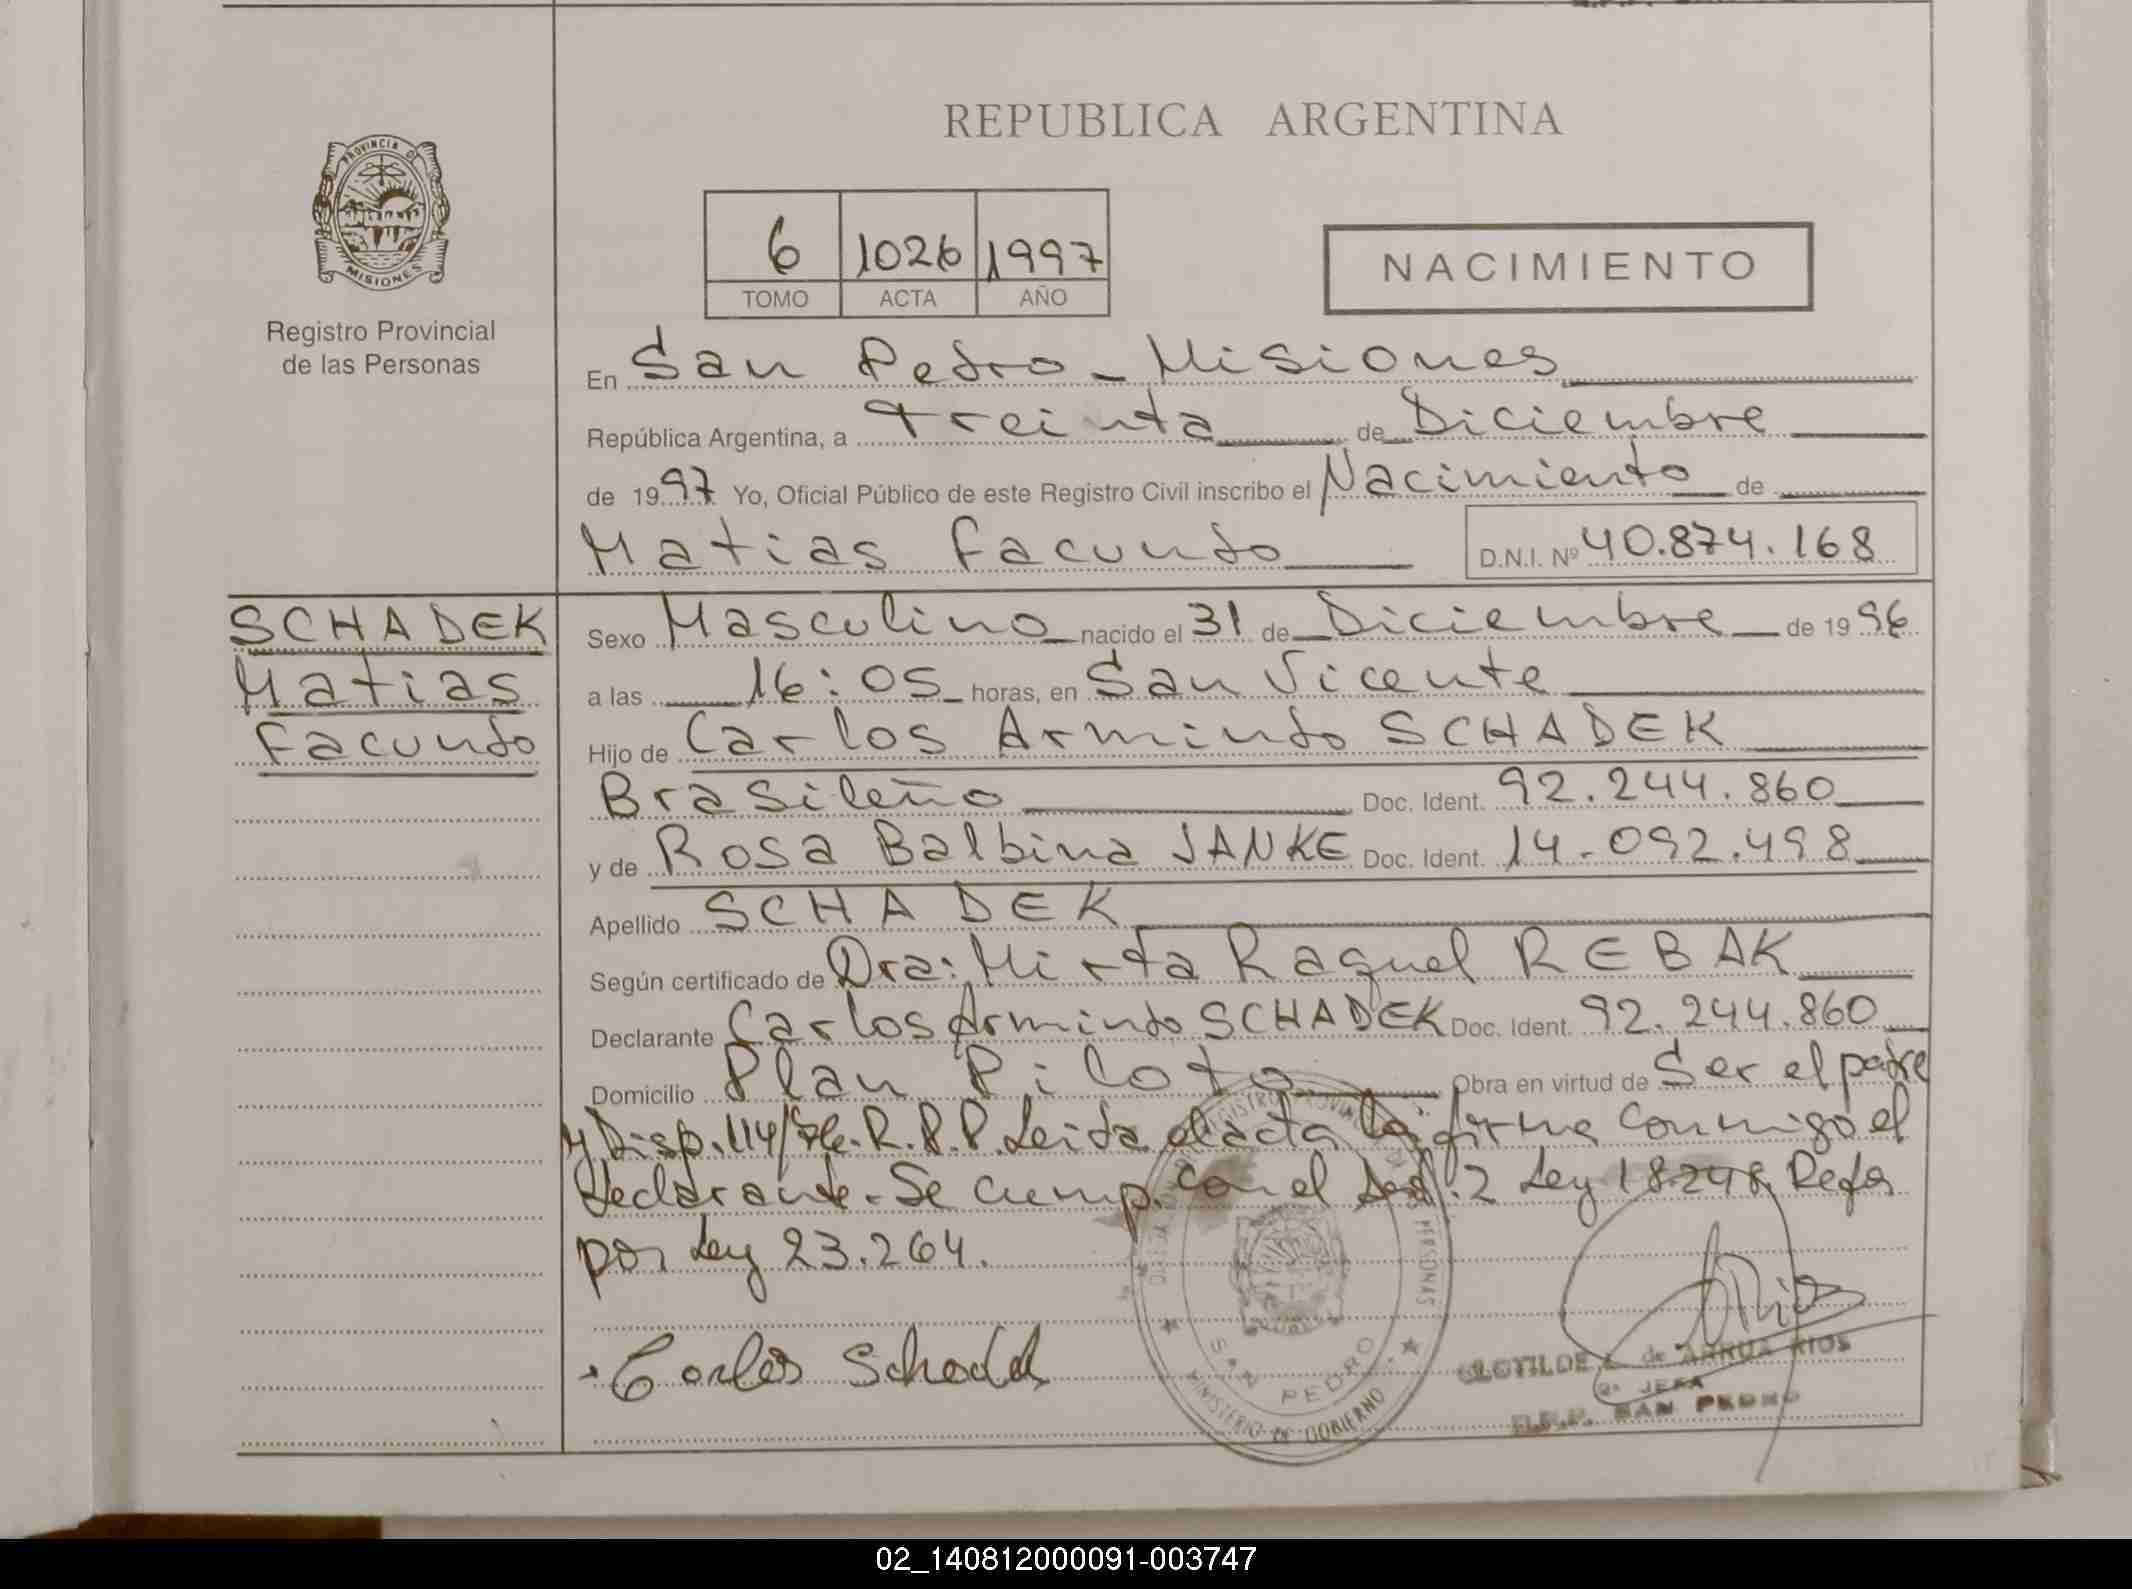 REPUBLICA ARGENTINA
PROVINCIA DE
MISIONES
Registro Provincial
de las Personas
6 1026 1997
TOMO ACTA AÑO
NACIMIENTO
En San Pedro - Misiones
República Argentina, a treinta de Diciembre
de 1997 Yo, Oficial Público de este Registro Civil inscribo el Nacimiento de
Matias Facundo D.N.I. Nº 40.874.168
SCHADEK
Matias
Facundo
Sexo Masculino nacido el 31 de Diciembre de 1996
a las 16:05 horas, en San Vicente
Hijo de Carlos Armindo SCHADEK
Brasileño Doc. Ident. 92.244.860
y de Rosa Balbina JANKE Doc. Ident. 14.092.498
Apellido SCHADEK
Según certificado de Dra: Mirta Raquel REBAK
Declarante Carlos Armindo SCHADEK Doc. Ident. 92.244.860
Domicilio Plan Piloto Obra en virtud de Ser el padre
y Disp. 114/96. R.P.P. Leida el acta la firma conmigo el
declarante. Se cump. con el Art. 2 Ley 18.248 Refor
por Ley 23.264.
Carlos Schadek
SAN PEDRO
MINISTERIO DE GOBIERNO
CLOTILDE de ARRUA RIOS
JEFA
SAN PEDRO
02_140812000091-003747